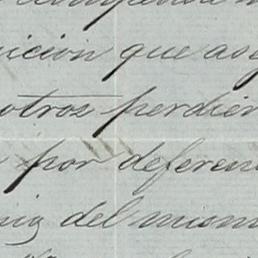 uicion que ase
otros perdier
por deferen
nia del mism